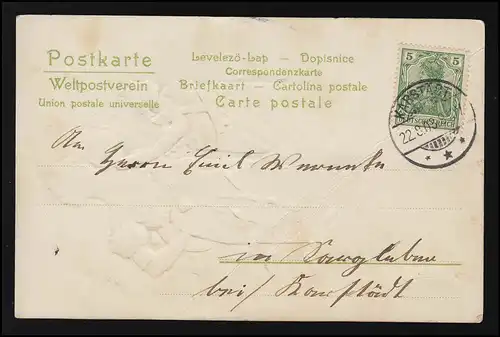 Postkarte
Weltpostverein
Union postale universelle
Levelező-Lap – Dopisnice
Correspondenzkarte
Briefkaart – Cartolina postale
Carte postale
5 5
22.8.
An Herrn Emil Warnke
in
bei